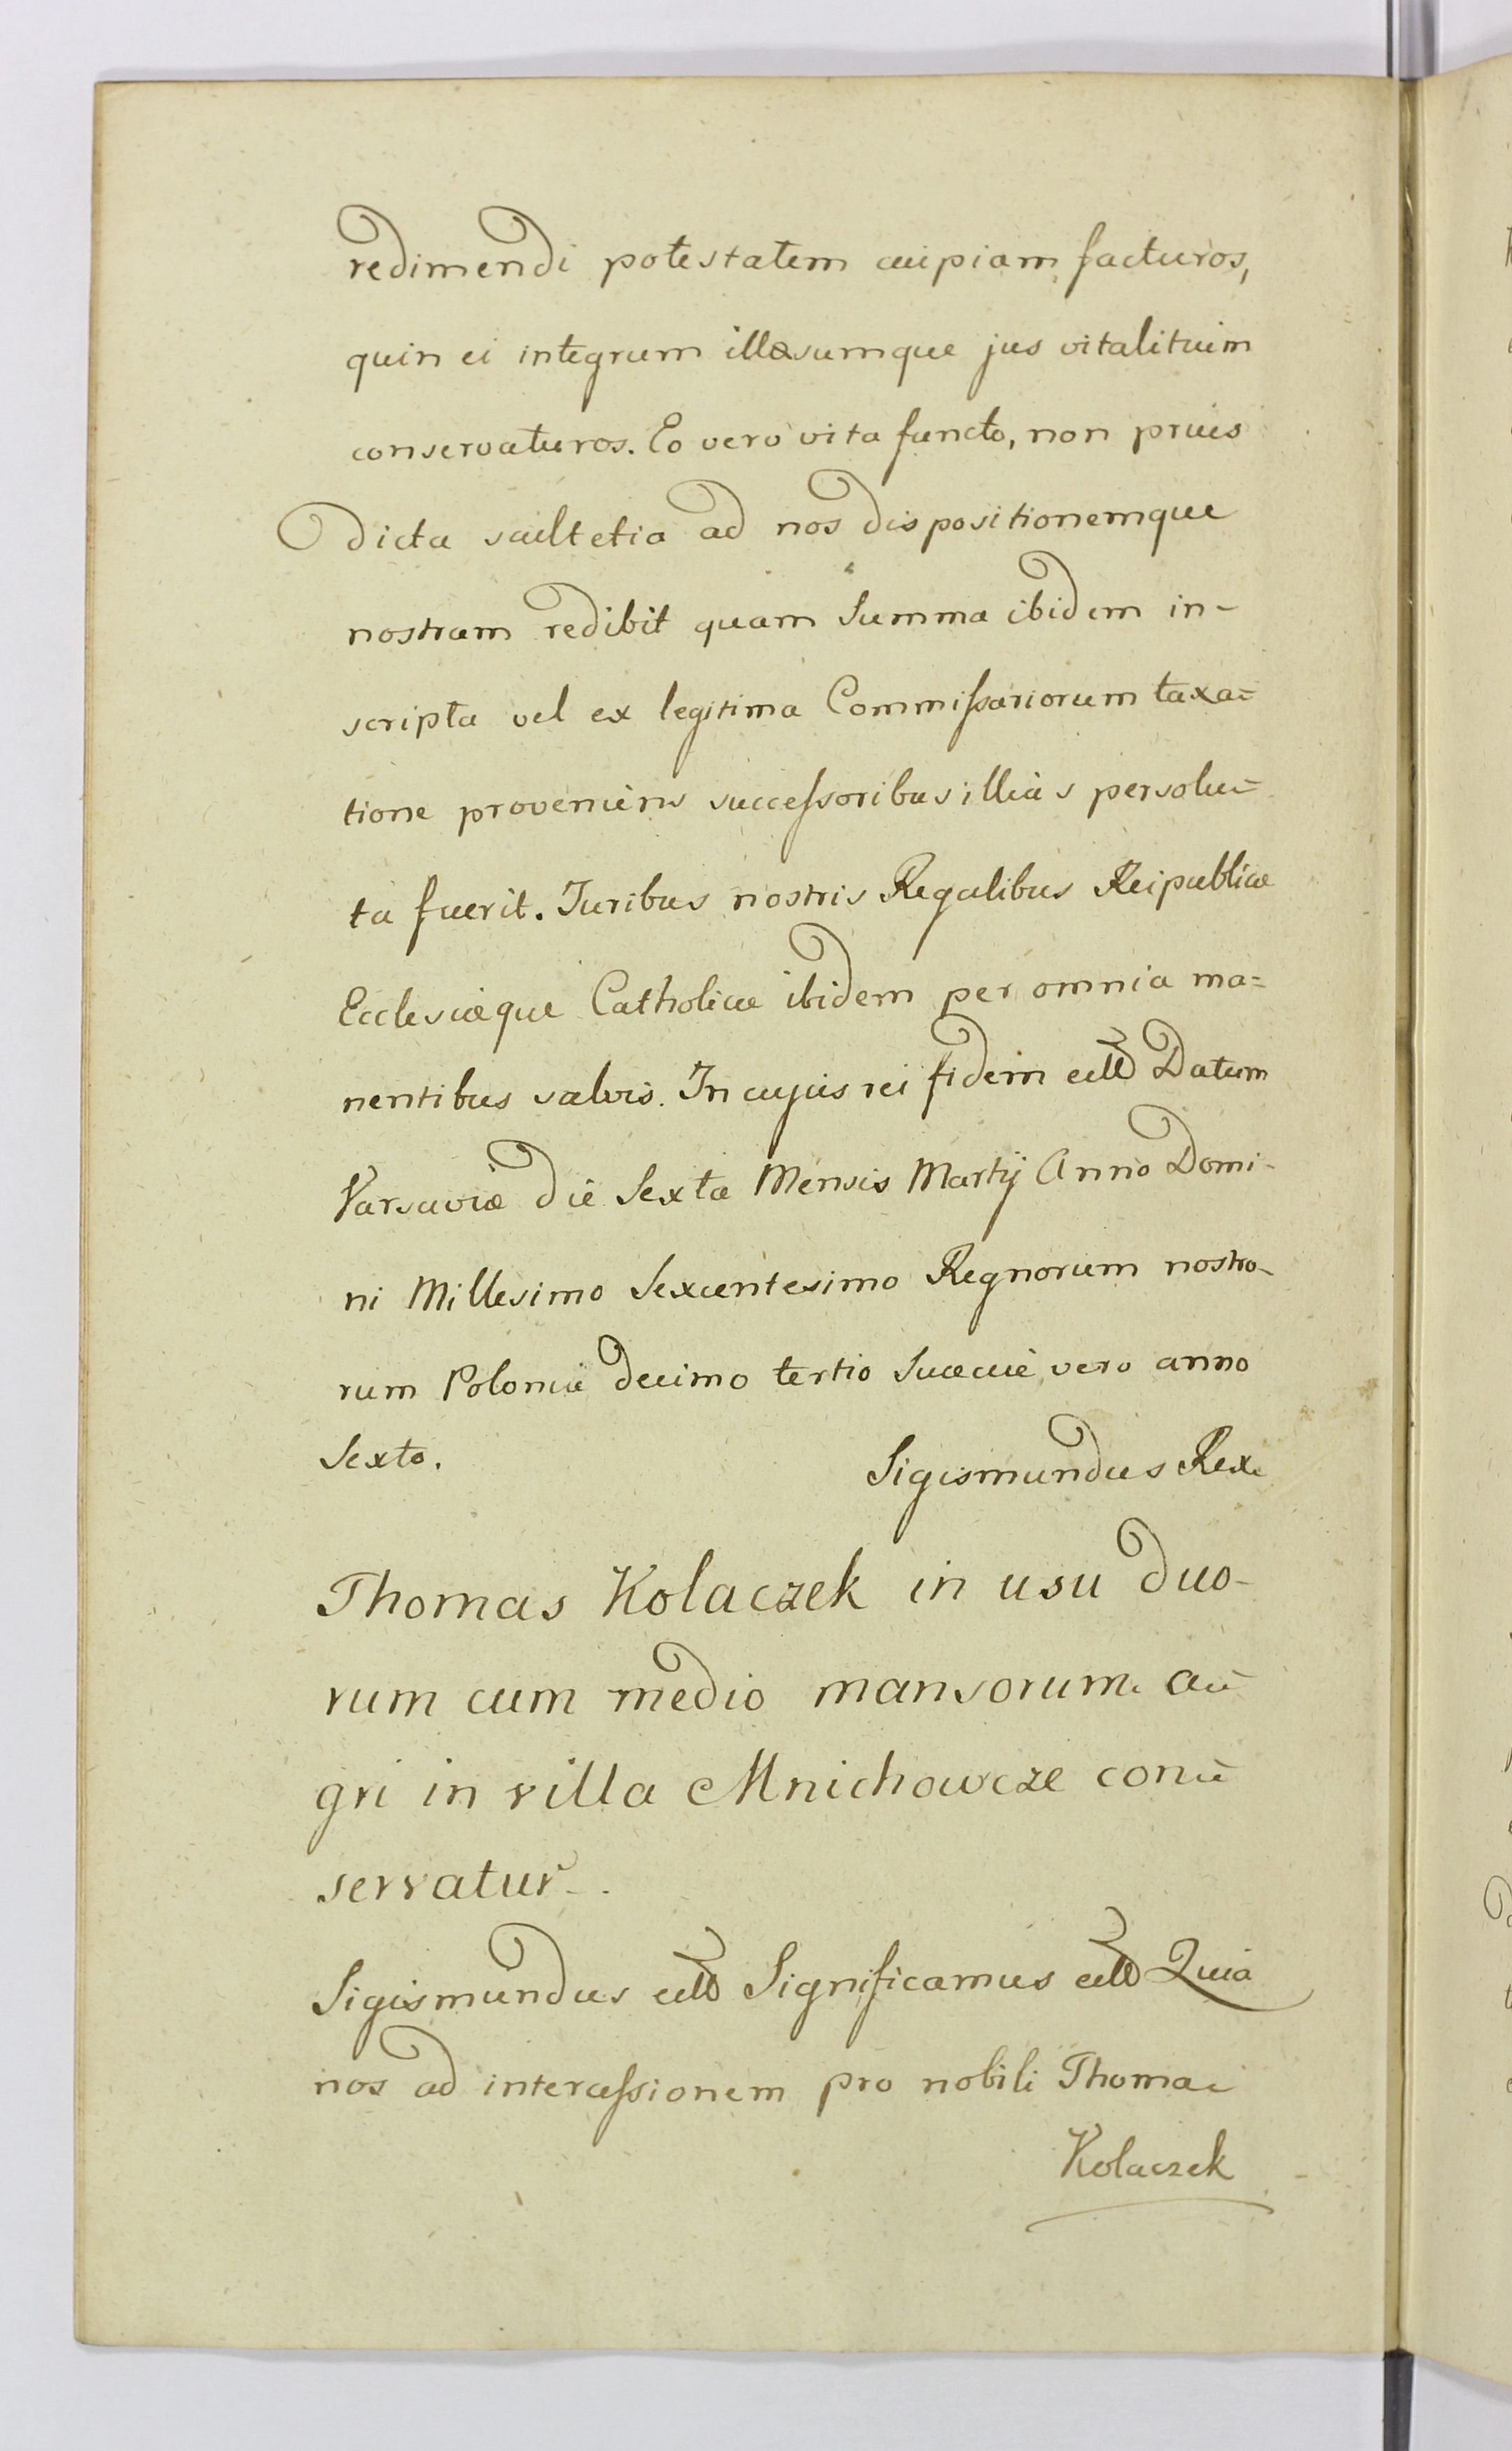 redimendi potestatem cuipiam facturos,
quin ei integrum illæsumque jus vitalituim
conservaturos. Eo vero vita functo, non prius
dicta scultetia ad nos dispositionemque
nostram redibit quam Summa ibidem in-
scripta vel ex legitima Commißariorum taxa=
tione proveniens succeßoribus illius persolu=
ta fuerit. Juribus nostris Regalibus Reipublicæ
Ecclesiæque Catholicæ ibidem per omnia ma=
nentibus salvis. In cujus rei fidem Datum
Varsaviæ die Sexta Mensis Martij Anno Domi-
ni Millesimo Sexcentesimo Regnorum nostro-
rum Poloniæ decimo tertio Sueciæ vero anno
Sexto.
Sigismundus Rex
Thomas Kolaczek in usu duo-
rum cum medio mansorum a=
gri in villa Mnichowcze con=
servatur.
Sigismundus Significamus Quia
nos ad interceßionem pro nobili Thoma
Kolaczek